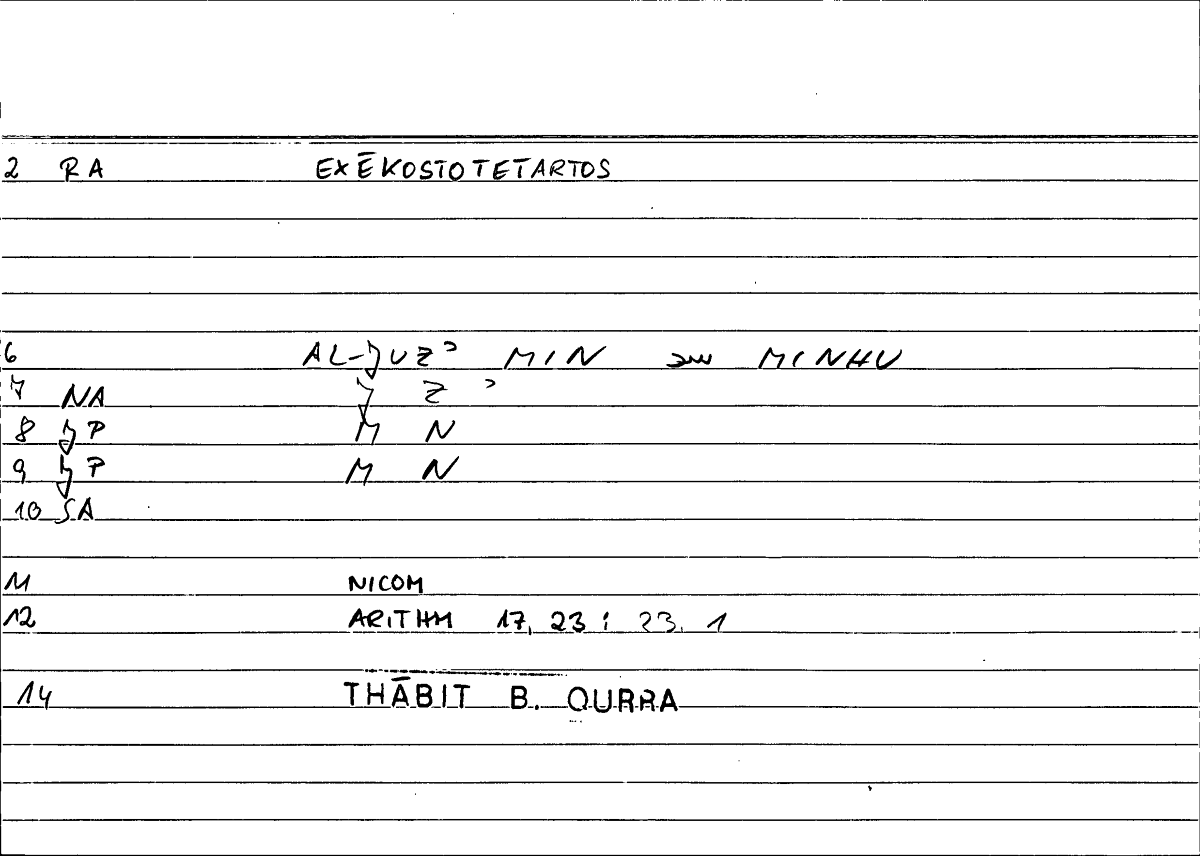 2 RA EXĒKOSTOTETARTOS
6 AL-JUZʾ MIN سد MINHU
7 NA J Z ʾ
8 JP M N
9 JP M N
10 SA
11 NICOM
12 ARITHM 17, 23 ; 23, 1
14 THĀBIT B. QURRA